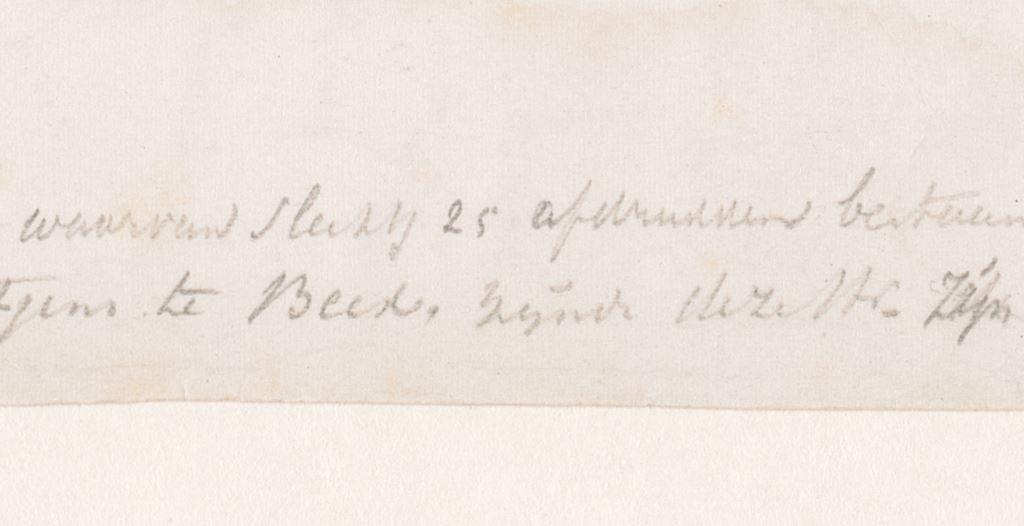 waarvan slechts 25 afdrukken bestaan
tjens te Beek, zijnde deze Zijn